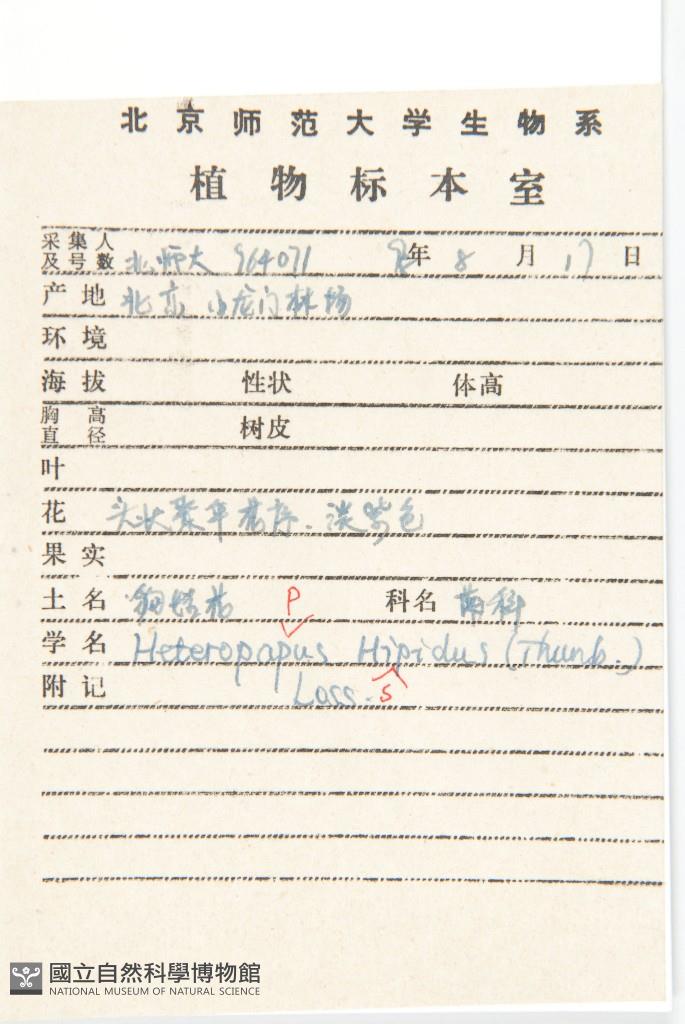 北京师范大学生物系
植物标本室
采集人及号数 北师大 964071 年 8 月 17 日
产地 北京 小龙门林场
环境
海拔 性状 体高
胸高直径 树皮
叶
花 头状聚伞花序、淡紫色
果实
土名 狗娃花 科名 菊科
学名 Heteropapus Hipidus (Thunb.)
P
附记 Less. s
國立自然科學博物館
NATIONAL MUSEUM OF NATURAL SCIENCE